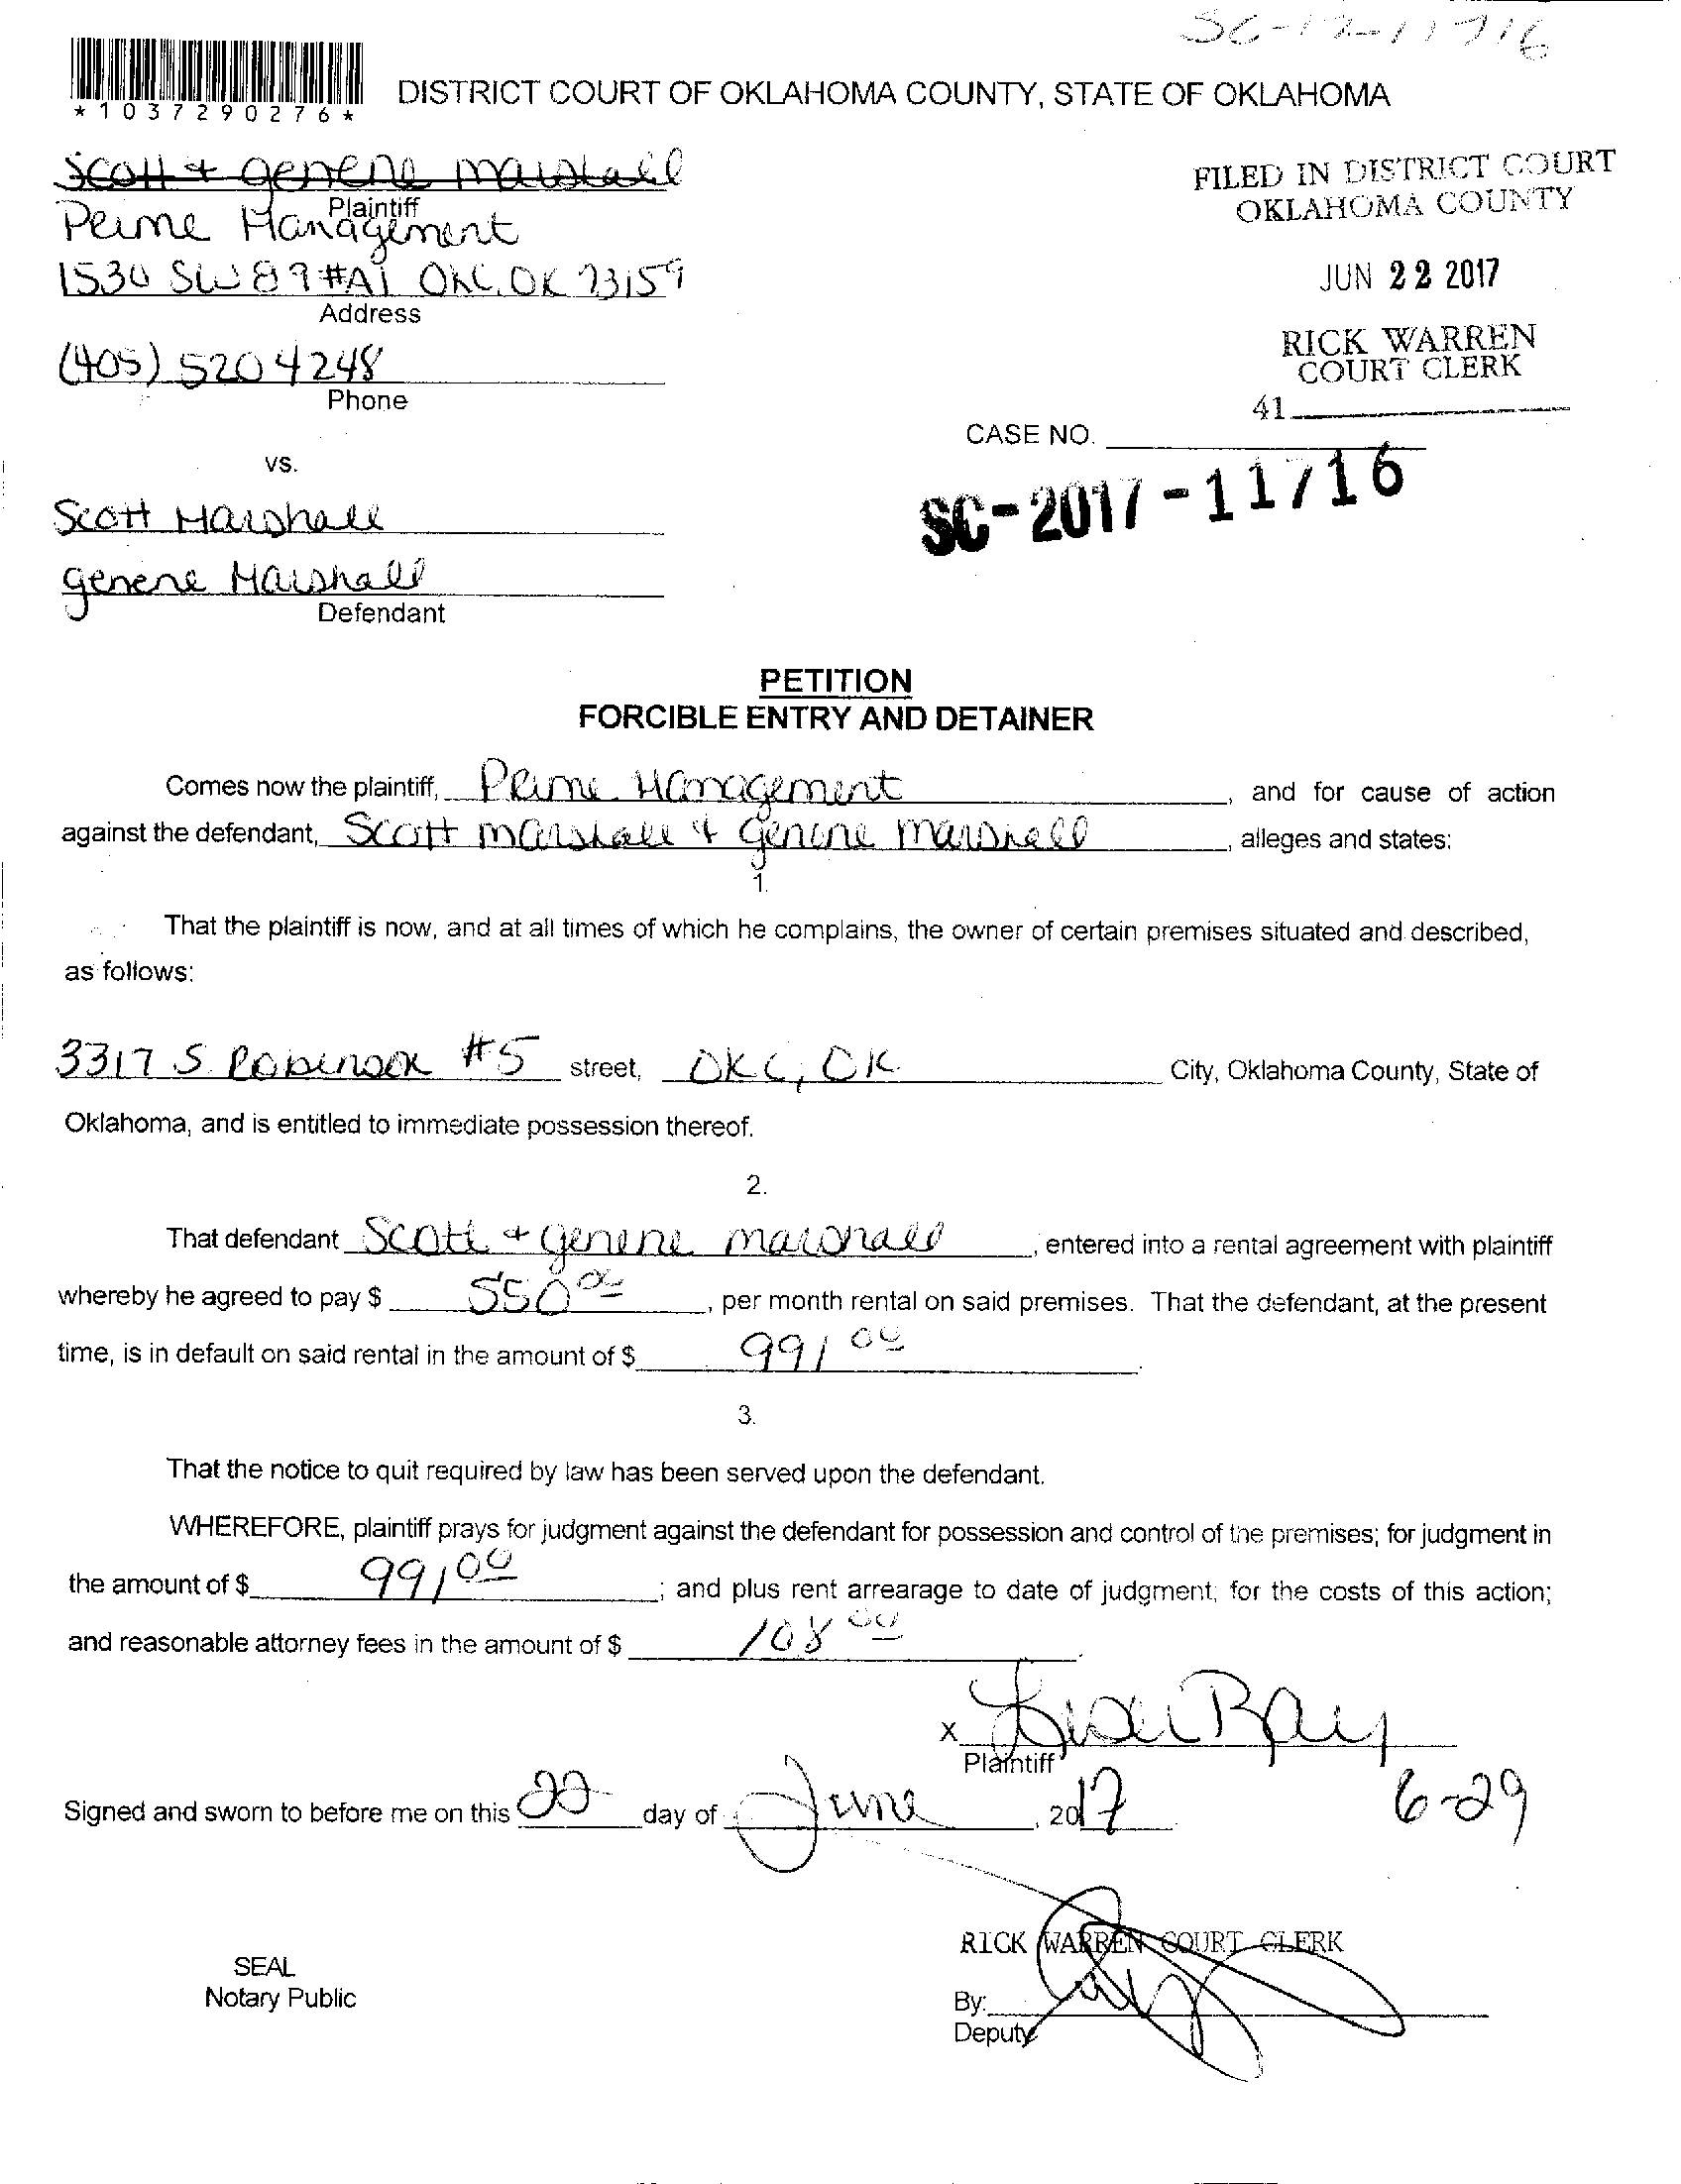 SC-17-11716
*1037290276*
DISTRICT COURT OF OKLAHOMA COUNTY, STATE OF OKLAHOMA
Scott + Genene Marshall
Plaintiff
Prime Management
1530 SW 89 #A1 OKC, OK 73159
Address
(405) 520 4248
Phone
FILED IN DISTRICT COURT
OKLAHOMA COUNTY
JUN 22 2017
RICK WARREN
COURT CLERK
41
CASE NO.
SC-2017-11716
vs.
Scott Marshall
Genene Marshall
Defendant
PETITION
FORCIBLE ENTRY AND DETAINER
Comes now the plaintiff, Prime Management, and for cause of action
against the defendant, Scott Marshall & Genene Marshall, alleges and states:
1.
That the plaintiff is now, and at all times of which he complains, the owner of certain premises situated and described,
as follows:
3317 S. Robinson #5 street, OKC, OK. City, Oklahoma County, State of
Oklahoma, and is entitled to immediate possession thereof.
2.
That defendant Scott + Genene Marshall, entered into a rental agreement with plaintiff
whereby he agreed to pay $ 550 00, per month rental on said premises. That the defendant, at the present
time, is in default on said rental in the amount of $ 991 00.
3.
That the notice to quit required by law has been served upon the defendant.
WHEREFORE, plaintiff prays for judgment against the defendant for possession and control of the premises; for judgment in
the amount of $ 991 00; and plus rent arrearage to date of judgment; for the costs of this action;
and reasonable attorney fees in the amount of $ 108 00.
X Lisa Bay
Plaintiff
Signed and sworn to before me on this 22 day of June, 2017
6-29
RICK WARREN COURT CLERK
SEAL
Notary Public
By:
Deputy